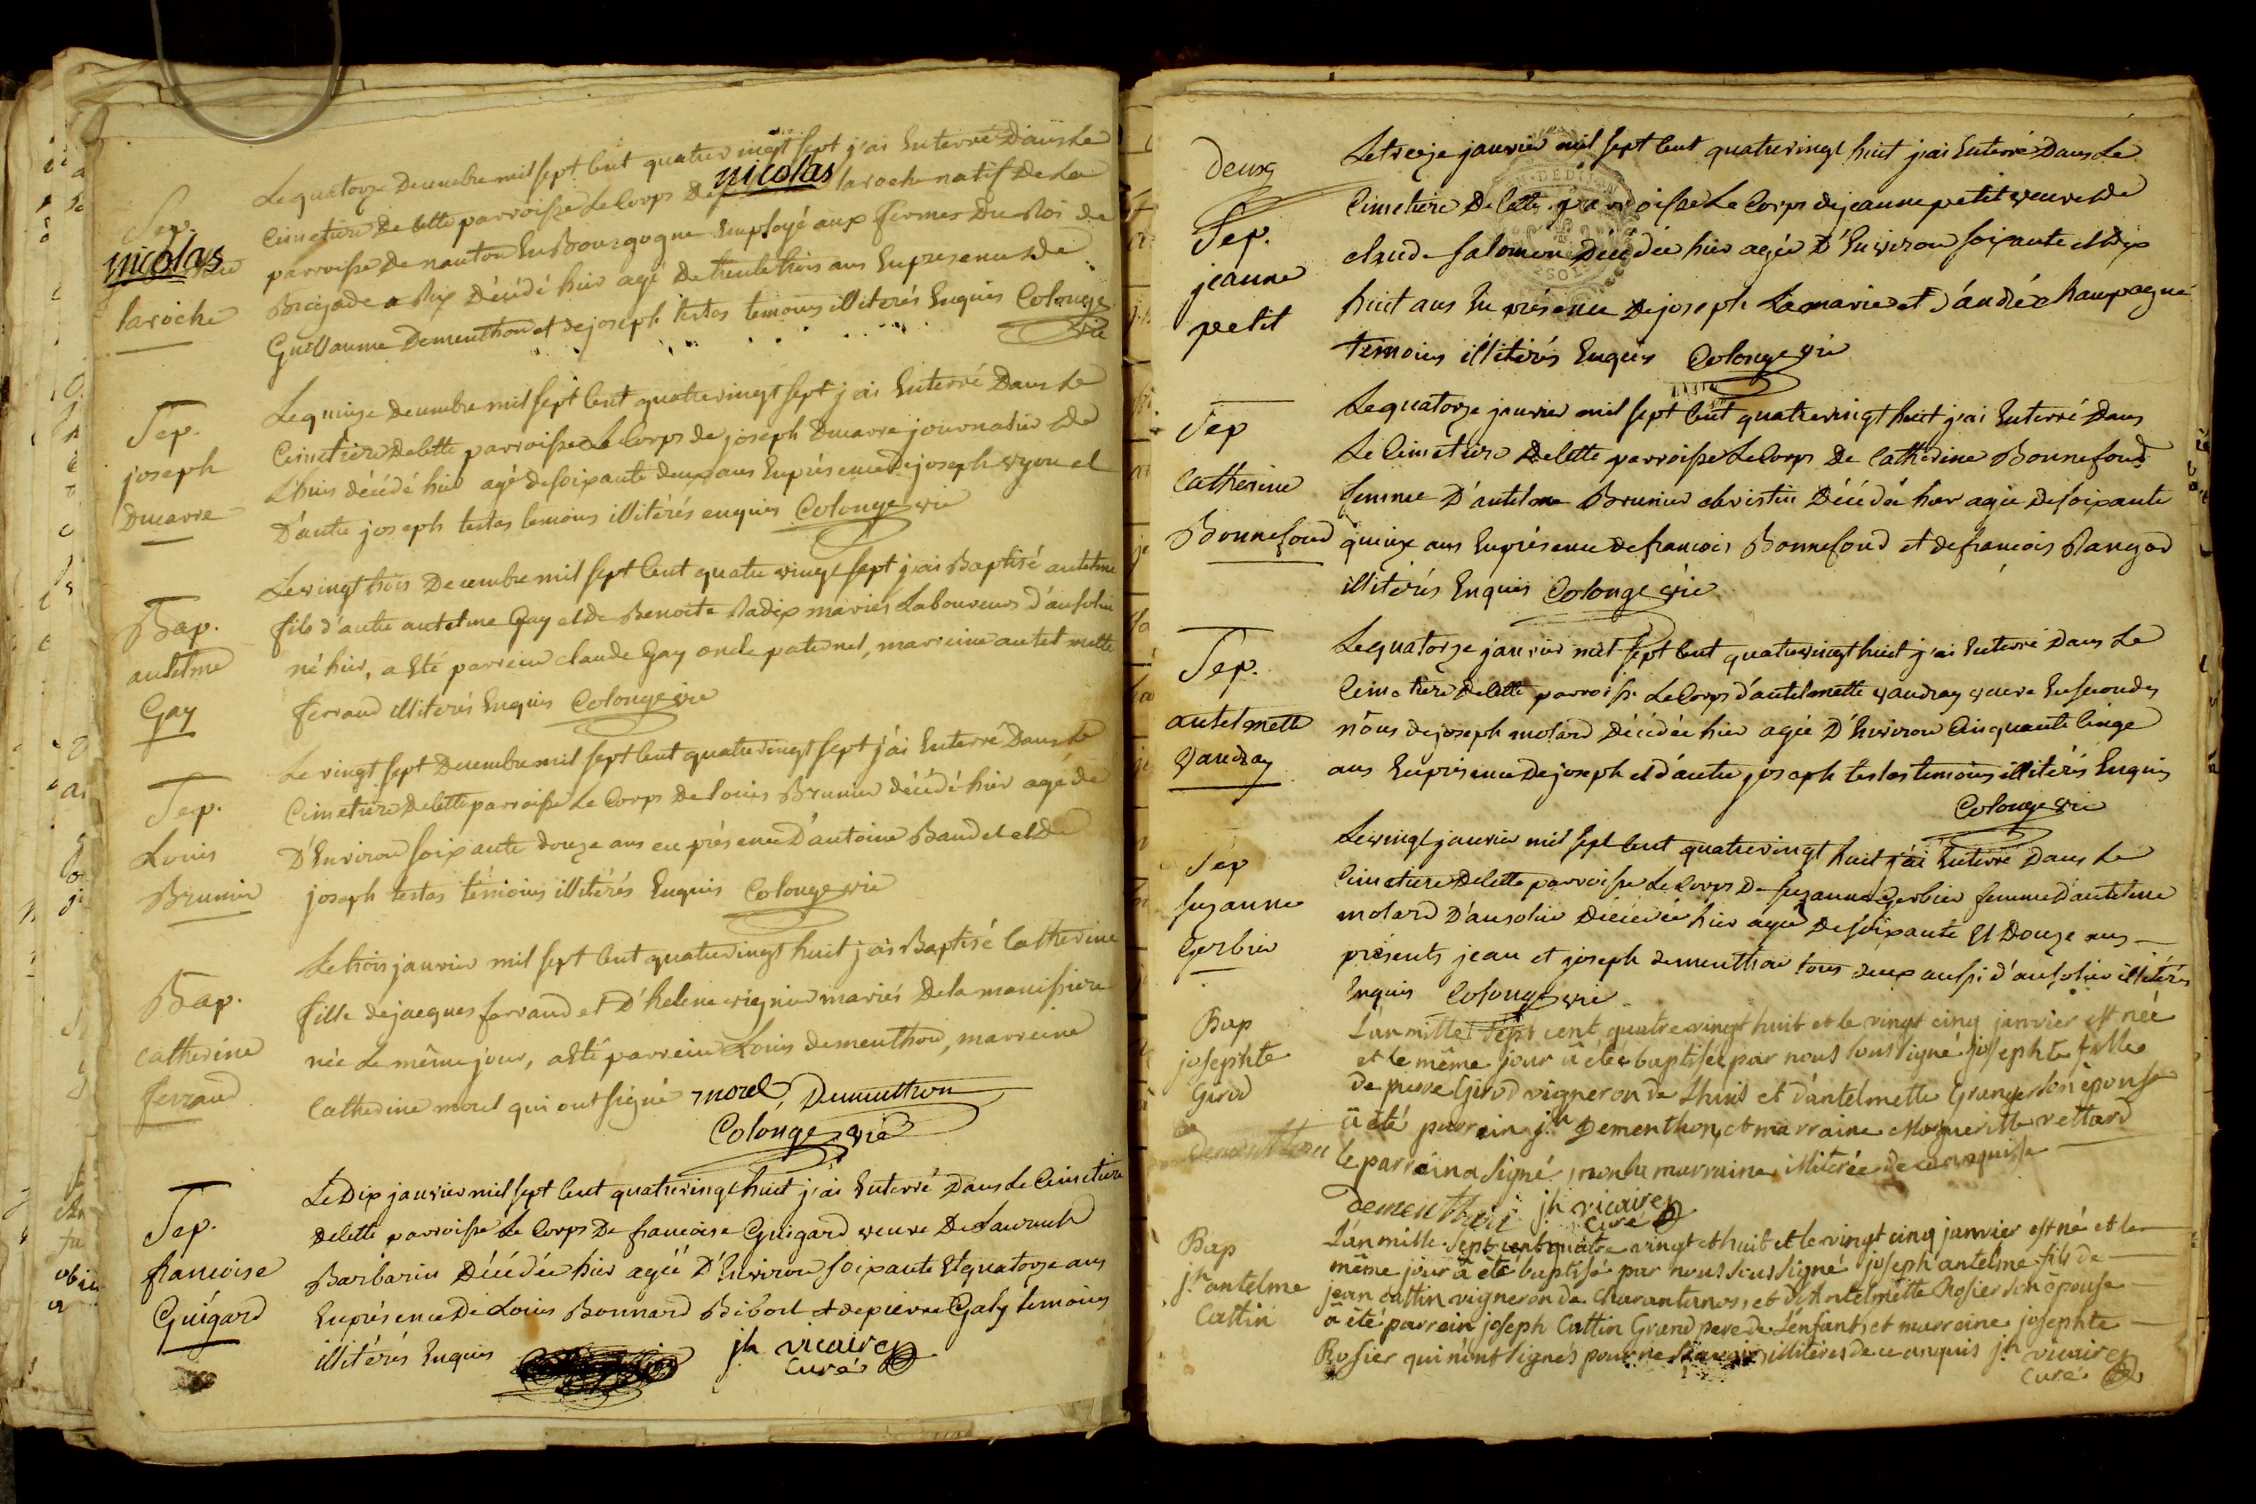 Sep.
nicolas
laroche
Le quatorze Decembre mil sept Cent quatre vingt sept j'ai Enterré Dans Le
Cimetiere De Cette parroisse Le Corps De nicolas laroche natif De La
parroisse De nanton En Bourgogne Employé aux fermes Du Roi de
Brigade a Rix Décédé hier agé De trente trois ans En presence de
Guillaume Dementhon et de joseph testas temoins illiterés Enquis Colonge
vic
Sep.
joseph
Ducarre
Le quinze decembre mil sept Cent quatre vingt sept j'ai Enterré Dans Le
Cimetiere De Cette parroisse Le Corps de joseph Ducarre journalier De
Lhuis décédé hier agé de soixante deux ans En présence De joseph vyon et
D'autre joseph testas temoins illitérés enquis Colonge vic
Bap.
antelme
Gay
Le vingt trois Decembre mil sept Cent quatre vingt sept j'ai Baptisé antelme
fils d'autre antelme Gay et De Benoite Radix mariés Laboureurs d'ansolin
né hier, a Eté parrein claude Gay oncle paternel, marreine antelmette
ferrand illiterés Enquis Colonge vic
Sep.
Louis
Brunier
Le vingt sept Decembre mil sept Cent quatre vingt sept j'ai Enterré Dans Le
Cimetiere De Cette parroisse Le Corps De louis Brunier décédé hier agé de
D'Environ soixante douze ans en présence D'antoine Baudet et De
joseph testas témoins illitérés Enquis Colonge vic
Bap.
Catherine
ferrand
Le trois janvier mil sept Cent quatre vingt huit j'ai Baptisé Catherine
fille de jacques ferrand et D'helene vignier mariés De la manissiere
née Le même jour, a Eté parrein Louis dementhon, marreine
Catherine morel qui ont signé morel, Dementhon
Colonge vic
Sep.
francoise
Guigard
Le Dix janvier mil sept Cent quatre vingt huit j'ai Enterré Dans Le Cimetiere
De Cette parroisse Le Corps De francoise Guigard veuve De Laurent
Barbarin Décédée hier agée D'Environ soixante Et quatorze ans
En présence De Louis Bonnard Bibost et de pierre Galy temoins
illitérés Enquis jh vicaire
curé
Deux
Sep.
jeanne
petit
Le treize janvier mil sept Cent quatre vingt huit j'ai Enterré Dans Le
Cimetiere De Cette parroisse Le Corps de jeanne petit veuve De
claude salomon Décédée hier agée D'Environ soixante et Dix
huit ans En présence De joseph Lamarie et d'andré champagne
temoins illitérés Enquis Colonge vic
Sep
Catherine
Bonnefoud
Le quatorze janvier mil sept Cent quatre vingt huit j'ai Enterré Dans
Le Cimetiere De Cette parroisse Le Corps De Catherine Bonnefoud
femme D'antelme Brunier christin Décédée hier agée De soixante
quinze ans En présence De francois Bonnefoud et de francois Rangod
illitérés Enquis Colonge vic
Sep.
antelmette
Vaudray
Le quatorze janvier mil sept Cent quatre vingt huit j'ai Enterré Dans Le
Cimetiere De Cette parroisse Le Corps d'antelmette Vaudray veuve En secondes
nôces de joseph molard Décédée hier agée D'Environ Cinquante Cinq
ans En présence De joseph et d'autre joseph testas temoins illitérés Enquis
Colonge vic
Sep
suzanne
Gerbier
Le vingt janvier mil sept Cent quatre vingt huit j'ai Enterré Dans Le
Cimetiere De Cette parroisse Le Corps De suzanne Gerbier femme d'antelme
molard D'ansolin Décédée hier agée De soixante Et Douze ans
présents jean et joseph dementhon tous deux aussi d'ansolin illitérés
Enquis Colonge vic
Bap
josephte
Girod
Dementhon
L'an mille sept cent quatre vingt huit et le vingt cinq janvier est née
et le même jour a été baptisée par nous soussigné josephte fille
de pierre Girod vigneron de Lhuis et d'antelmette Granger son épouse
a été parrein jh Dementhon, et marraine Marguerite rettard
le parrein a signé, non la marraine illiterée de ce enquise
dementhon jh vicaire
curé
Bap
jh antelme
Cattin
L'an mille sept cent quatre vingt et huit et le vingt cinq janvier est né et le
même jour a été baptisé par nous soussigné joseph antelme fils de
jean cattin vigneron de Charantonos, et d'Antelmette Rosier son épouse
a été parrein joseph Cattin Grand pere de L'enfant, et marreine josephte
Rosier qui n'ont signés pour ne sçavoir illiteres de ce enquis jh vicaire
curé